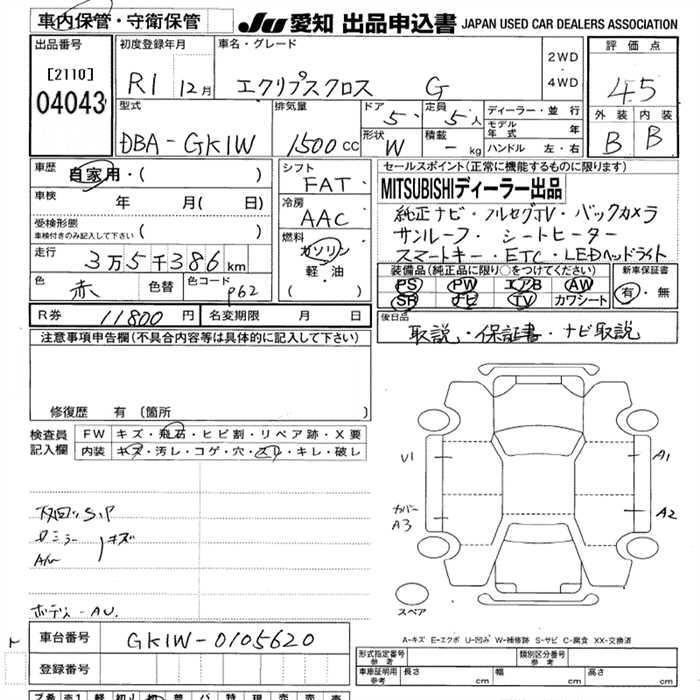 車内保管・守衛保管
JU 愛知 出品申込書 JAPAN USED CAR DEALERS ASSOCIATION
出品番号
[2110]
04043
初度登録年月
R1 12月
車名・グレード
エクリプスクロス G
2WD
・
4WD
評価点
4.5
外装 内装
B B
型式
DBA-GK1W
排気量
1500cc
ドア 5
定員 5人
形状 W
積載 - kg
ディーラー・並行
モデル年式 年
ハンドル 左・右
車歴
自家用・( )
車検 年 月( 日)
受検形態
車検付きのみ記入して下さい ( )
走行 3万5千386km
色 赤 色替 色コード P62
シフト
FAT
冷房
AAC
燃料
ガソリン
軽・油
( )
セールスポイント(正常に機能するものに限ります)
MITSUBISHIディーラー出品
純正ナビ・フルセグTV・バックカメラ
サンルーフ・シートヒーター
スマートキー・ETC・LEDヘッドライト
装備品(純正品に限り○をつけてください)
PS PW エアB AW
SR ナビ TV カワシート
新車保証書
有・無
後日品
取説・保証書・ナビ取説
R券 11800円 名変期限 月 日
注意事項申告欄(不具合内容等は具体的に記入して下さい)
修復歴 有(箇所 )
検査員
記入欄
FW キズ・飛石・ヒビ割・リペア跡・X要
内装 キズ・汚レ・コゲ・穴・スレ・キレ・破レ
S.P
ロミラー キズ
A/W
ボディ-AU.
V1
A1
カバー
A3
A2
スペア
A-キズ E-エクボ U-凹み W-補修跡 S-サビ C-腐食 XX-交換済
車台番号 GK1W-0105620
登録番号
形式指定番号
参考
類別区分番号
参考
車庫証明用
参考
長さ cm
幅 cm
高さ cm